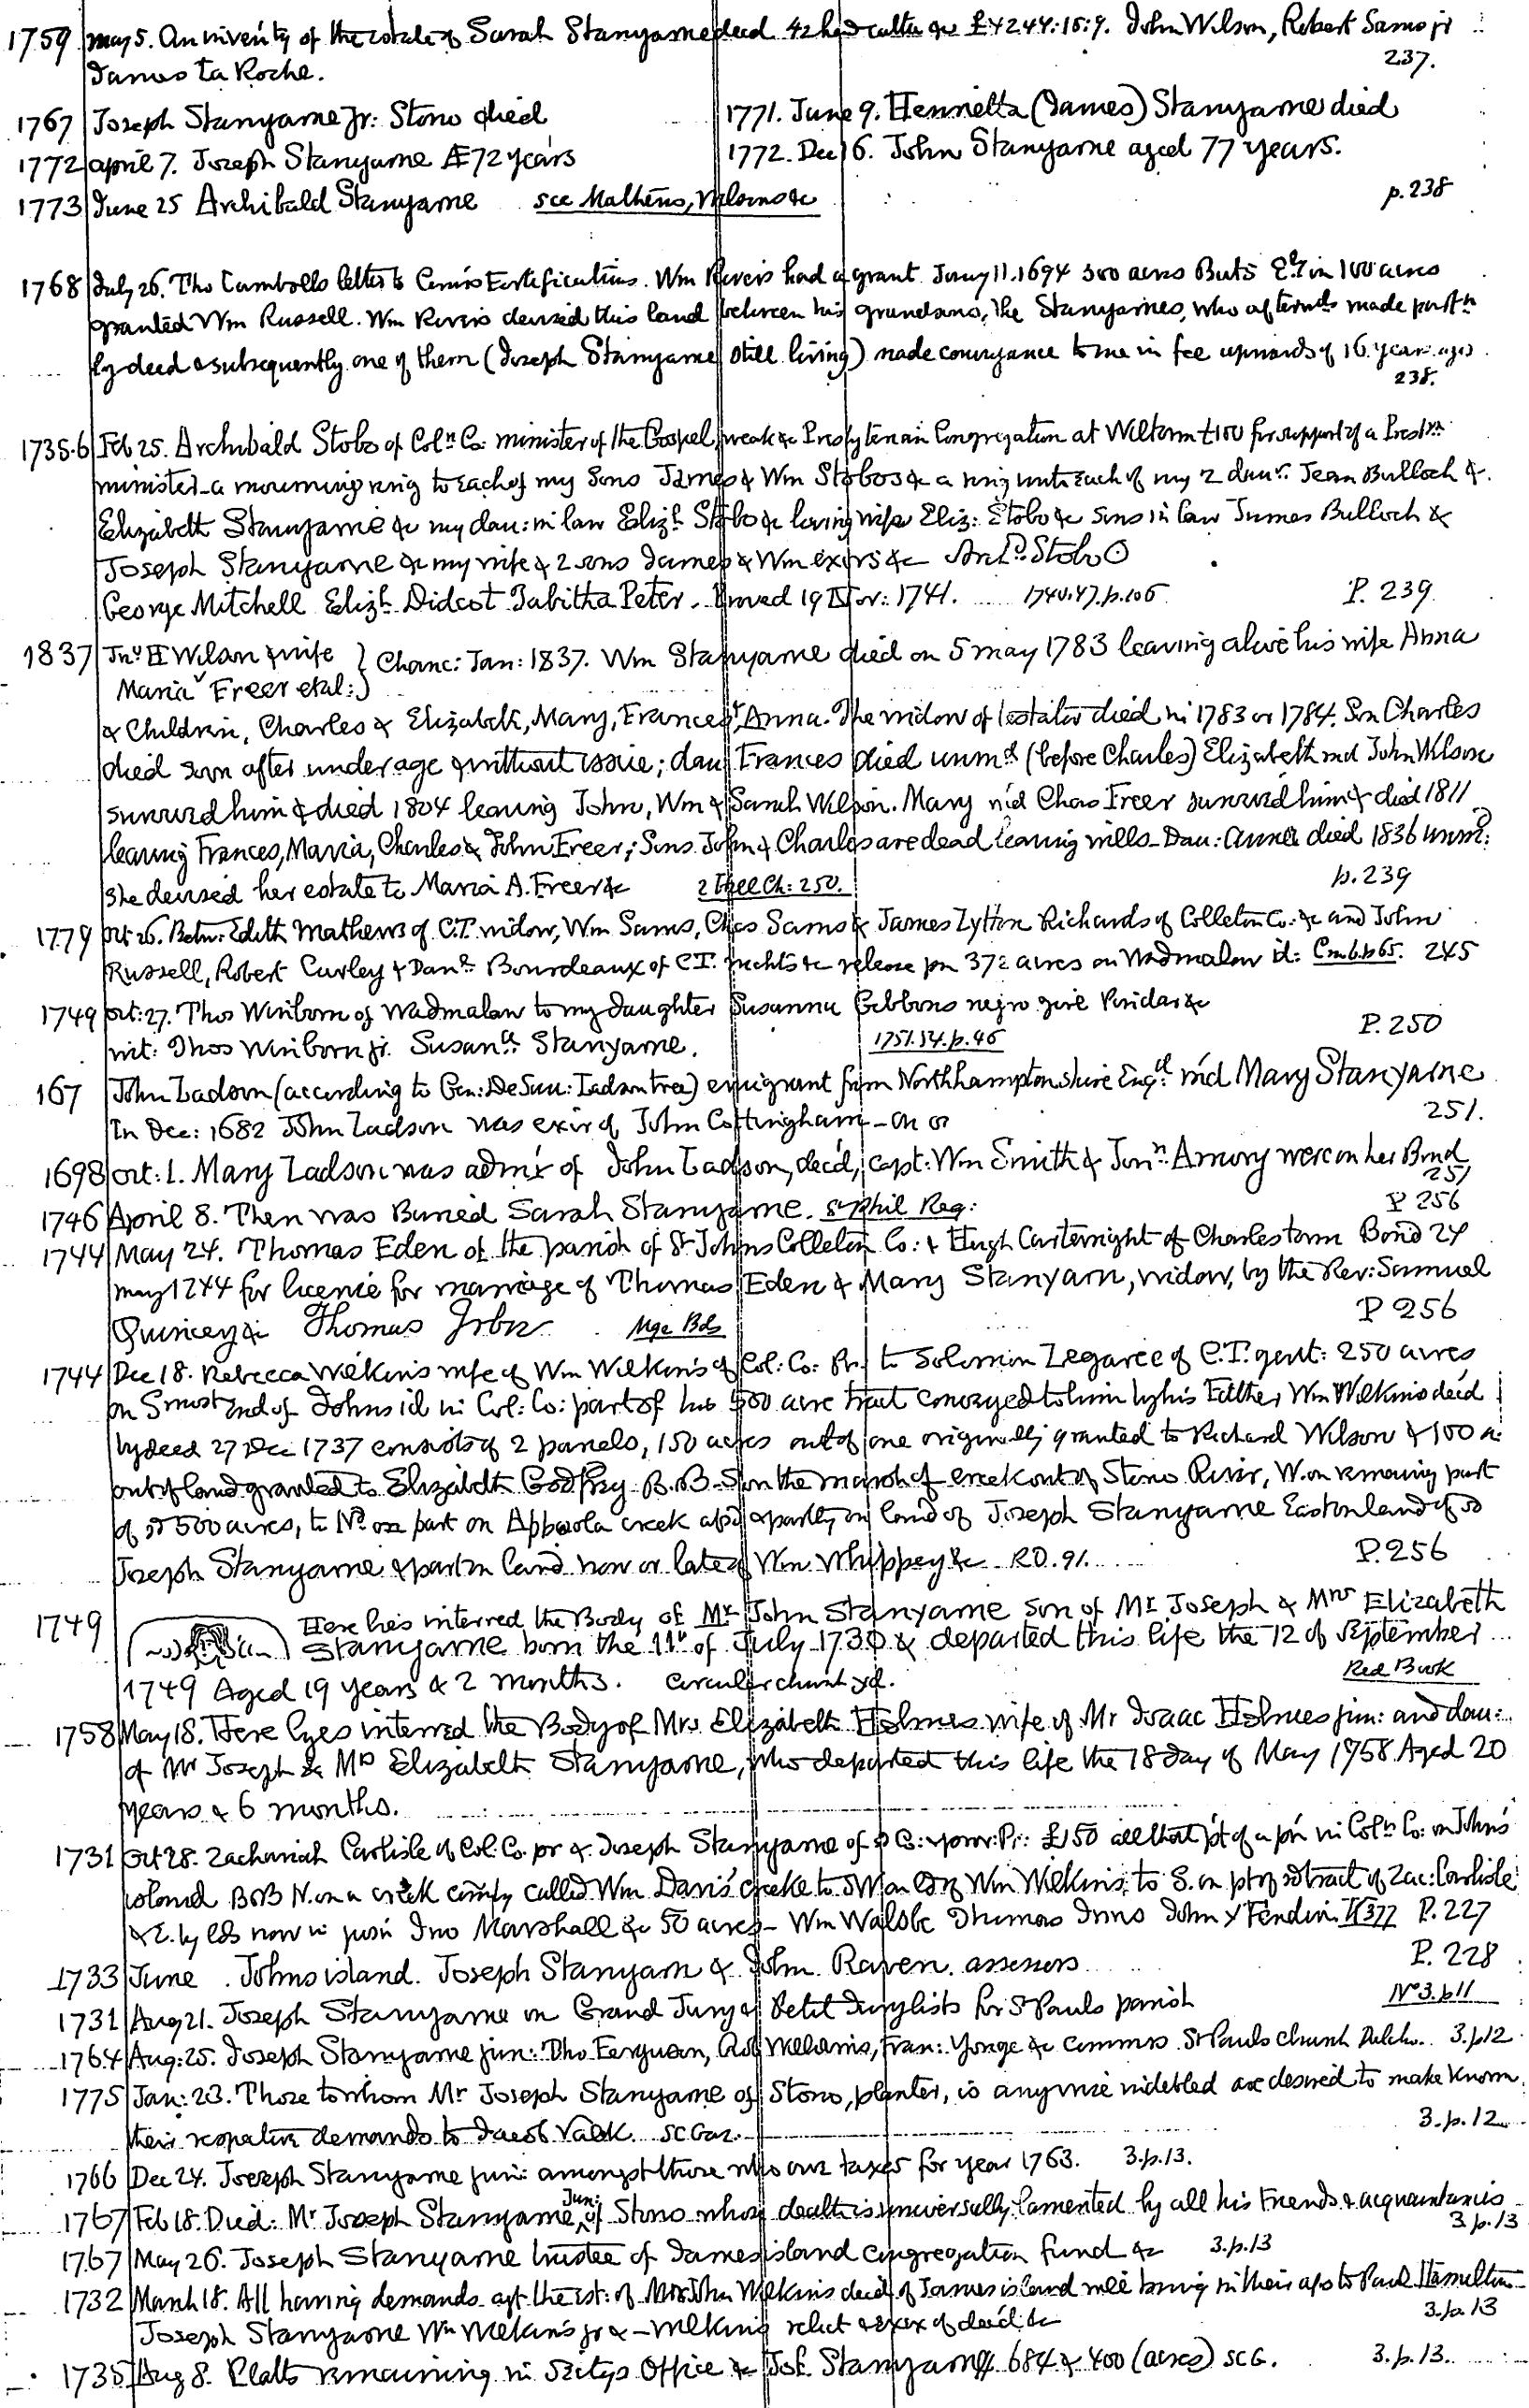 1759 May 5. An inventy of the estate of Sarah Stanyarne decd 42 hd cattle &c £4244:15:9. John Wilson, Robert Sams jr
James La Roche. 237.
1767 Joseph Stanyarne Jr: Stono died 1771. June 9. Henrietta (James) Stanyarne died
1772 april 7. Joseph Stanyarne Æ 72 years 1772. Dec 16. John Stanyarne aged 77 years.
1773 June 25 Archibald Stanyarne see Mathews, Wilsons &c p. 238
1768 July 26. Tho Lambolls letter to Comrs Fortifications. Wm Rivers had a grant Jany 11. 1694 300 acres Buts Ely in 100 acres
granted Wm Russell. Wm Rivers devised this land between his grandsons, the Stanyarnes, who afterwds made partn
by deed & subsequently one of them (Joseph Stanyarne still living) made conveyance to me in fee upwards of 16 years ago.
238.
1735.6 Feb 25. Archibald Stobo of Coln Co: minister of the Gospel, weak &c Presbyterian Congregation at Wiltown £100 for support of a Presbyn
minister - a mourning ring to each of my sons James & Wm Stobo & a ring unto each of my 2 daurs Jean Bulloch &
Elizabeth Stanyarne &c my dau: in law Elizh Stobo &c loving wife Eliz: Stobo &c sons in law James Bulloch &
Joseph Stanyarne &c my wife & 2 sons James & Wm exors &c Archd Stobo O
George Mitchell Elizh Didcot Tabitha Peter. Proved 19 Nor: 1741. 1740.47.p.106 P. 239
1837 Jno H Wilson & wife } Chanc: Jan: 1837. Wm Stanyarne died on 5 may 1783 leaving alive his wife Anna
Maria v Freer etal: }
& Children, Charles & Elizabeth, Mary, Frances & Anna. The widow of testator died in 1783 or 1784. Son Charles
died soon after under age & without issue; dau Frances died unmd (before Charles) Elizabeth md John Wilson
survivd him & died 1804 leaving John, Wm & Sarah Wilson. Mary md Chas Freer survivd him & died 1811
leaving Frances, Maria, Charles & John Freer; Sons John & Charles are dead leaving wills - Dau: Anna died 1836 unmd:
she devised her estate to Maria A. Freer &c 2 Hill Ch: 250. p. 239
1779 Oct 26. Betw: Edith Mathews of C.T. widow, Wm Sams, Chas Sams & James Lytton Richards of Colleton Co: &c and John
Russell, Robert Curley & Danl Bourdeaux of C.T. mchts &c release pn 372 acres on Wadmalaw id: Cm6.p65. 245
1749 Oct: 27. Thos Winborn of Wadmalaw to my daughter Susanna Gibbons negro girl Pindar &c
wit: Thos Winborn jr. Susana Stanyarne. 1751.54.p.46 P. 250
167 John Ladson (according to Gen: DeSau: Ladson tree) emigrant from Northhamptonshire Engd md Mary Stanyarne
In Dec: 1682 John Ladson was exor of John Cottingham - on or 251.
1698 Oct: 1. Mary Ladson was admx of John Ladson, decd, Capt: Wm Smith & Jonn Amory were on her Bond
251
1746 April 8. Then was Buried Sarah Stanyarne. St Phil Reg: P 256
1744 May 24. Thomas Eden of the parish of St Johns Colleton Co: & Hugh Cartwright of Charlestown Bond 24
may 1744 for license for marriage of Thomas Eden & Mary Stanyarn, widow, by the Rev: Samuel
Quincey &c Thomas Mge Bds P 256
1744 Dec 18. Rebecca Wilkins wife of Wm Wilkins of Col: Co: Pr. to Solomon Legaree of C.T. gent: 250 acres
on Smost end of Johns id in Col: Co: part of his 500 acre tract conveyed to him by his Father Wm Wilkins decd
by deed 27 Dec 1737 consists of 2 parcels, 150 acres out of one originally granted to Richard Wilson & 100 a:
out of land granted to Elizabeth Godfrey B.B. S on the marsh of creek out of Stono River, W. on remaing part
of sd 500 acres, to Nd on part on Appoola creek afsd & partly on land of Joseph Stanyarne East on land of sd
Joseph Stanyarne & part on land now or late of Wm Whippey &c R.O. 91. P. 256
1749 Here lies interred the Body of Mr John Stanyarne son of Mr Joseph & Mrs Elizabeth
Stanyarne born the 11th of July 1730 & departed this life the 12 of September
1749 Aged 19 years & 2 months. Circular church yd. Red Book
1758 May 18. Here lyes interred the Body of Mrs Elizabeth Holmes wife of Mr Isaac Holmes jun: and dau:
of Mr Joseph & Mrs Elizabeth Stanyarne, who departed this life the 18 day of May 1758 Aged 20
years & 6 months.
1731 Oct 28. Zachariah Carlisle of Col: Co. pr & Joseph Stanyarne of sd Co: Pr: £150 all that pt of a pn in Coln Co: on Johns
island BB N. on a creek comly called Wm Davis creeke to SW on lds of Wm Wilkins, to S. on pt of sd tract of Zac: Carlisle
& E. by lds now in possn Jno Marshall &c 50 acres - Wm Walsbe Thomas Inns John X Fendin P. 227
1733 June. Johns island. Joseph Stanyarn & John Raven assessors P. 228
1731 Aug 21. Joseph Stanyarne on Grand Jury & Petit Jury lists for St Pauls parish No 3. p11
1764 Aug: 25. Joseph Stanyarne jun: Tho Ferguson, Rd Williams, Fran: Yonge &c commrs St Pauls church Dalcho. 3.p12
1775 Jan: 23. Those to whom Mr Joseph Stanyarne of Stono, planter, is any wise indebted are desired to make known
their respective demands to Jacob Valk. SC Gaz. 3.p.12
1766 Dec 24. Joseph Stanyarne jun: amongst those who owe taxes for year 1763. 3.p.13.
1767 Feb 18. Died: Mr Joseph Stanyarne Jun: of Stono whose death is universally lamented by all his Friends & acquaintances
3.p.13
1767 May 26. Joseph Stanyarne trustee of James island congregation fund &c 3.p.13
1732 March 18. All having demands agt the est: of Mr John Wilkins decd of James island will bring in their a/cs to Paul Hamilton
Joseph Stanyarne Wm Wilkins jr & - Wilkins relict & exex of decd &c 3.p.13
1735 Aug 8. Platts remaining in Secitys Office &c Jos. Stanyarn 684 & 400 (acres) SCG. 3.p.13.